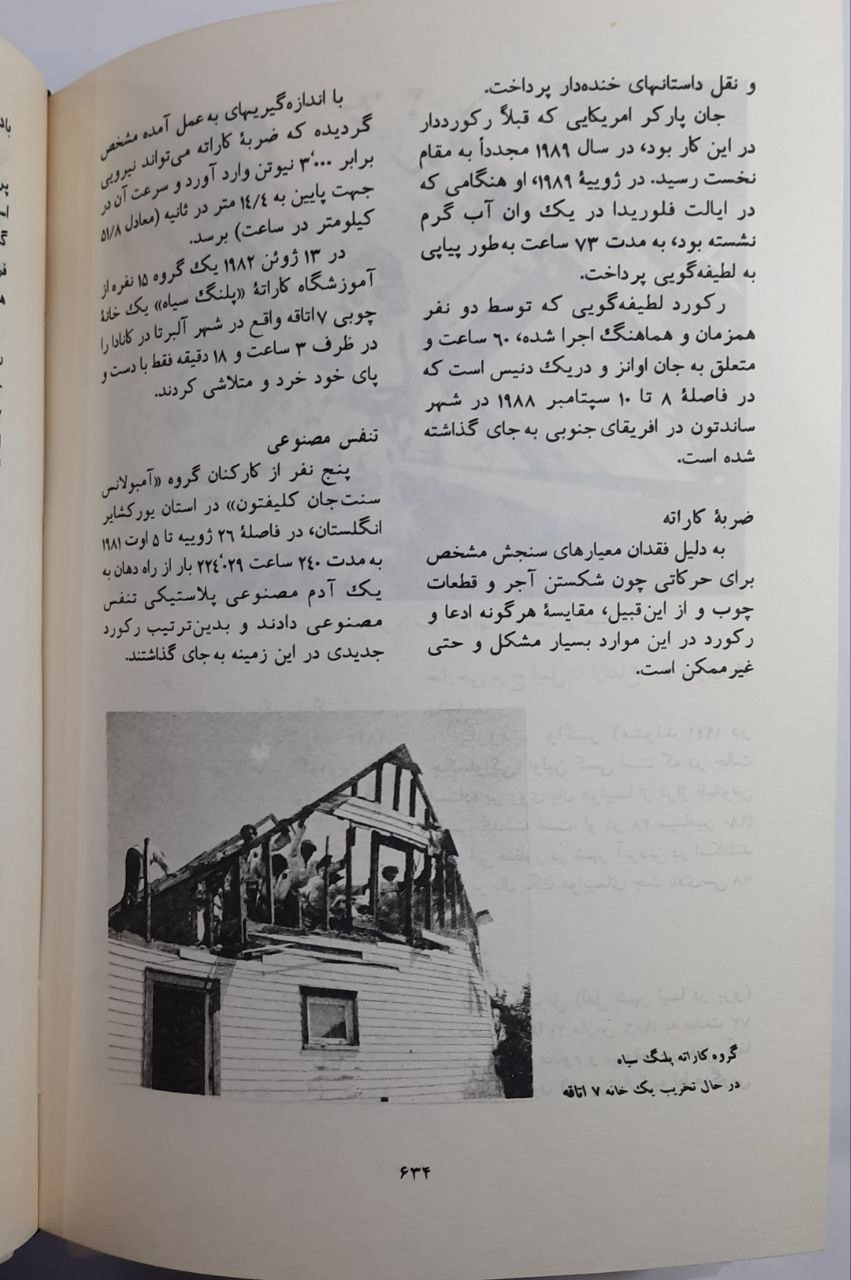 و نقل داستانهای خنده‌دار پرداخت.
جان پارکر امریکایی که قبلاً رکورددار
در این کار بود، در سال ۱۹۸۹ مجدداً به مقام
نخست رسید. در ژوییهٔ ۱۹۸۹، او هنگامی که
در ایالت فلوریدا در یک وان آب گرم
نشسته بود، به مدت ۷۳ ساعت به‌طور پیاپی
به لطیفه‌گویی پرداخت.
رکورد لطیفه‌گویی که توسط دو نفر
همزمان و هماهنگ اجرا شده، ۶۰ ساعت و
متعلق به جان اوانز و دریک دنیس است که
در فاصلهٔ ۸ تا ۱۰ سپتامبر ۱۹۸۸ در شهر
ساندتون در افریقای جنوبی به‌جای گذاشته
شده است.
ضربهٔ کاراته
به دلیل فقدان معیارهای سنجش مشخص
برای حرکاتی چون شکستن آجر و قطعات
چوب و از این‌قبیل، مقایسهٔ هرگونه ادعا و
رکورد در این موارد بسیار مشکل و حتی
غیرممکن است.
با اندازه‌گیریهای به‌عمل آمده مشخص
گردیده که ضربهٔ کاراته می‌تواند نیرویی
برابر ۳٬۰۰۰ نیوتن وارد آورد و سرعت آن در
جهت پایین به ۱۴/۴ متر در ثانیه (معادل ۵۱/۸
کیلومتر در ساعت) برسد.
در ۱۳ ژوئن ۱۹۸۲ یک گروه ۱۵ نفره از
آموزشگاه کاراتهٔ «پلنگ سیاه» یک خانهٔ
چوبی ۷اتاقه واقع در شهر آلبرتا در کانادا را
در ظرف ۳ ساعت و ۱۸ دقیقه فقط با دست و
پای خود خرد و متلاشی کردند.
تنفس مصنوعی
پنج نفر از کارکنان گروه «آمبولانس
سنت‌جان کلیفتون» در استان یورکشایر
انگلستان، در فاصلهٔ ۲۶ ژوییه تا ۵ اوت ۱۹۸۱
به مدت ۲۴۰ ساعت ۲۲۴٬۰۲۹ بار از راه دهان به
یک آدم مصنوعی پلاستیکی تنفس
مصنوعی دادند و بدین‌ترتیب رکورد
جدیدی در این زمینه به‌جای گذاشتند.
گروه کاراته پلنگ سیاه
در حال تخریب یک خانه ۷ اتاقه
۶۳۴